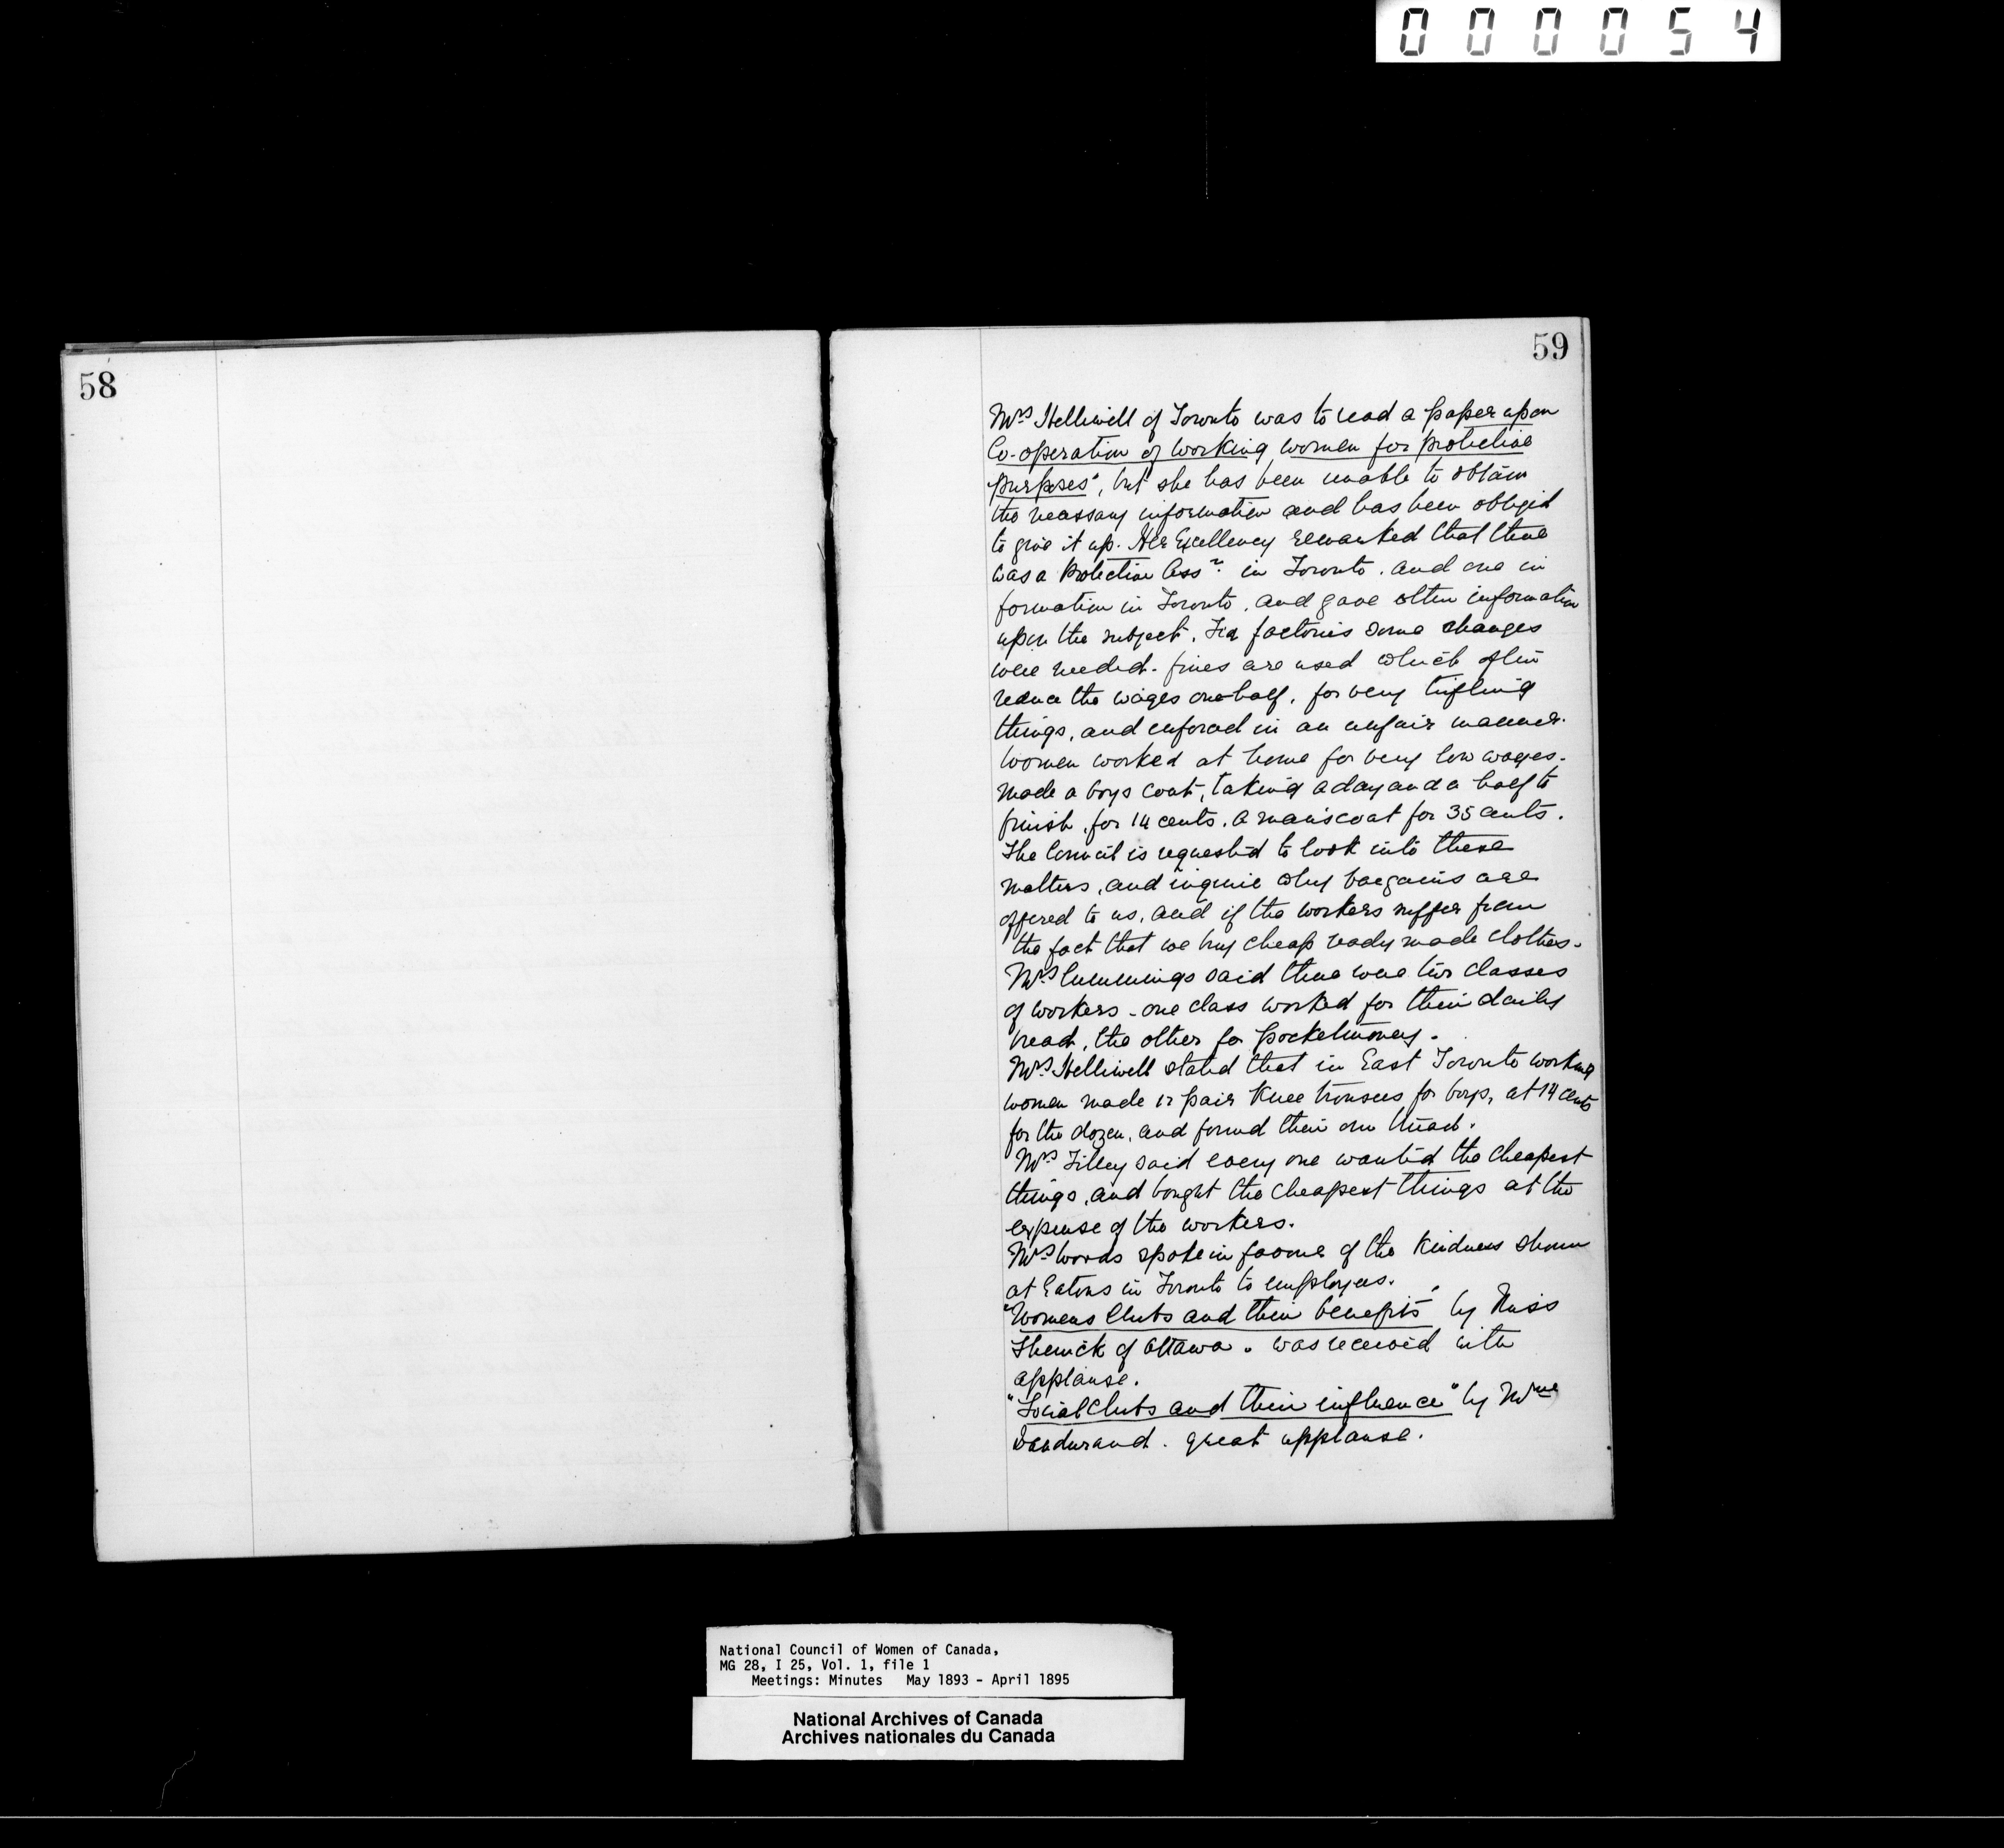 000054
58
59
Mrs Helliwell of Toronto was to read a paper upon
Co-operation of working women for protective
purposes", but she has been unable to obtain
the necessary information and has been obliged
to give it up. Her Excellency remarked that there
was a Protective Assn. in Toronto. and one in
formation in Toronto. and gave other information
upon the subject. In factories some changes
were needed. fines are used which often
reduce the wages one half, for very trifling
things, and enforced in an unfair manner.
Women worked at home for very low wages.
Made a boys coat, taking a day and a half to
finish, for 14 cents. a man's coat for 35 cents.
The Council is requested to look into these
matters, and inquire why bargains are
offered to us, and if the workers suffer from
the fact that we buy cheap ready made clothes.
Mrs Cummings said there were two classes
of workers - one class worked for their daily
bread, the other for pocketmoney.
Mrs Helliwell stated that in East Toronto working
women made 12 pair Knee trousers for boys, at 14 cents
for the dozen, and found their own thread.
Mrs Tilley said every one wanted the cheapest
things, and bought the cheapest things at the
expense of the workers.
Mrs Woods spoke in favour of the kindness shown
at Eatons in Toronto to employees.
"Womens Clubs and their benefits" by Miss
of Ottawa. was received with
applause.
"Social Clubs and their influence" by Mme
Dandurand. great applause.
National Council of Women of Canada,
MG 28, I 25, Vol. 1, file 1
Meetings: Minutes May 1893 - April 1895
National Archives of Canada
Archives nationales du Canada